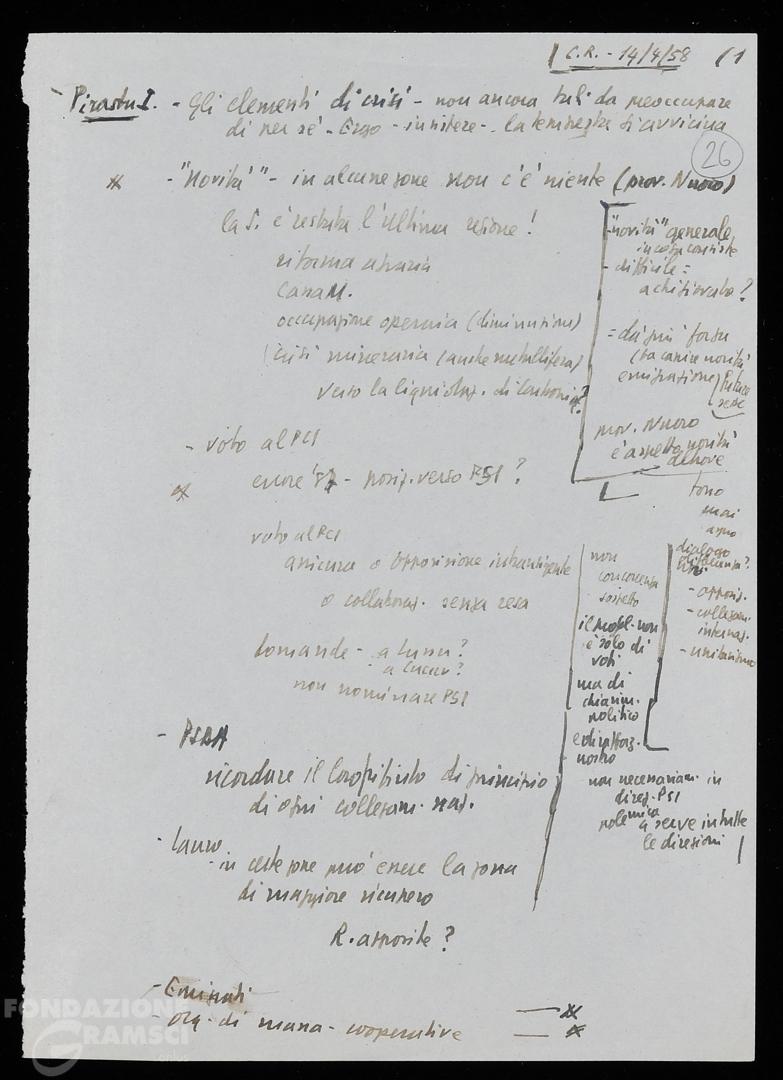 C.R. - 14/4/58 (1
Pirastu I. - Gli elementi di crisi - non ancora tali da preoccupare
di per sé - Ergo - insistere - la tempesta si avvicina
26
- "Novità" - in alcune zone non c'è niente (prov. Nuoro)
la S. è restata l'ultima regione!
riforma agraria
Casa M.
occupazione operaia (diminuzione)
crisi mineraria (anche metallifera)
verso la liquidaz. di Carbonia?
- voto al PCI
errore '57 - posiz. verso PSI?
voto al PCI
assicura o opposizione intransigente
o collaboraz. senza resa
domande - a Lussu?
a Cucca?
non nominare PSI
- PSdA
ricordare il
di principio
di ogni collegam. naz.
- Lauro
- in certe zone può essere la zona
di maggiore recupero
R. apposite?
- Emigrati
org. di massa - cooperative
"novità" generale
in cosa consiste
- difficile =
a chi si
?
= dà più forza
emigrazione
prov. Nuoro
è aspetto novità
altrove
tono
mai
dialogo
- opposiz.
- collegam.
internaz.
- unitarismo
non
concorrenza
sospetto
il probl. non
è solo di
voti
ma di
chiarim.
politico
e di rafforz.
nostro
non necessariam. in
direz. PSI
polemica
serve in tutte
le direzioni
FONDAZIONE
GRAMSCI
onlus